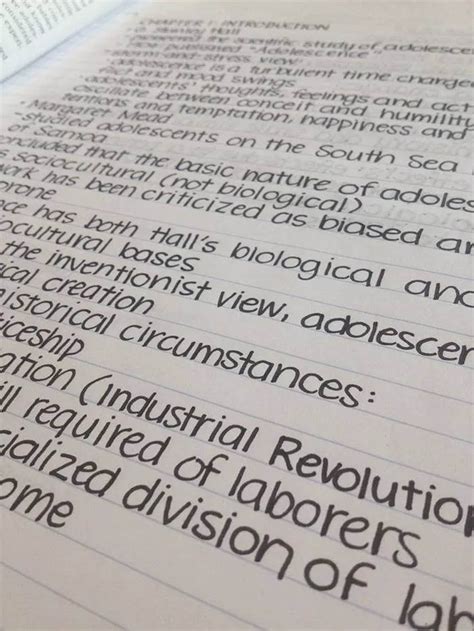 CHAPTER 1: INTRODUCTION
G. Stanley Hall
pioneered the scientific study of adolescen
published "Adolescence"
storm-and-stress view:
adolescence is a turbulent time charge
and mood swings
adolescents' thoughts, feelings and act
oscillate between conceit and humility
tentions and temptation, happiness and
• Margaret Mead
-studied adolescents on the South Sea
of Samoa
ncluded that the basic nature of adoles
s sociocultural (not biological)
ork has been criticized as biased ar
prone
nce has both Hall's biological and
ocultural bases
the inventionist view, adolescer
ical creation
historical circumstances:
ticeship
ation (Industrial Revolution
ill required of laborers
cialized division of lab
ome